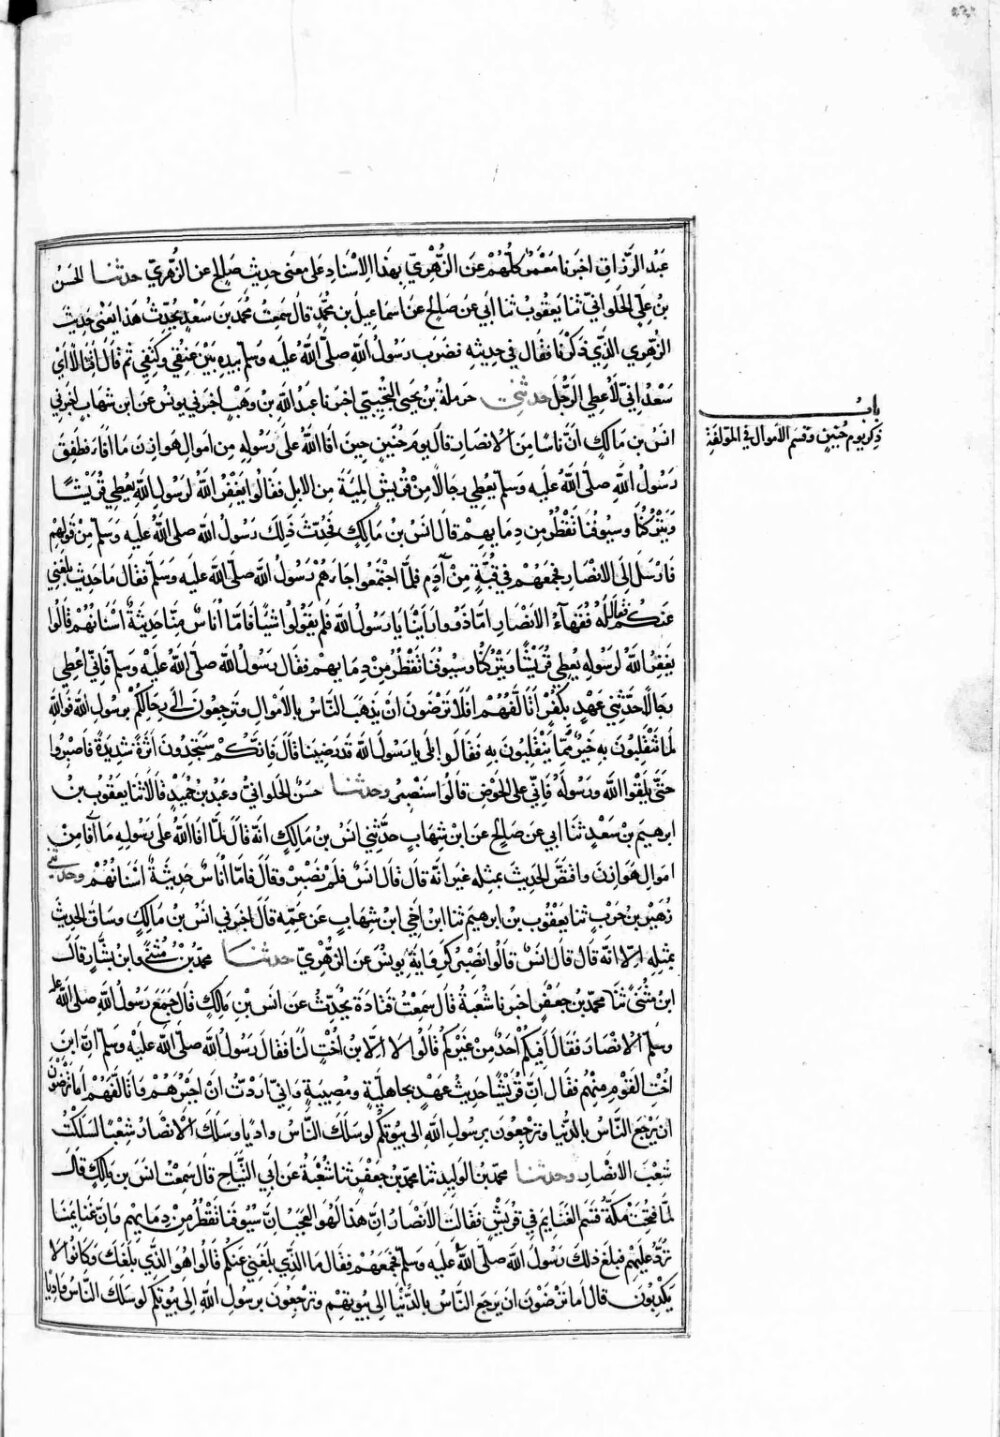 عبد الرزاق اخبرنا معمر كلهم عن الزهري بهذا الاسناد على معنى حديث صالح عن الزهري حدثنا الحسن
بن علي الحلواني ثنا يعقوب ثنا ابي عن صالح عن اسماعيل بن محمد قال سمعت محمد بن سعد يحدث هذا يعني حديث
الزهري الذي ذكرنا فقال في حديثه فضرب رسول الله صلى الله عليه وسلم بيده بين عنقي وكتفي ثم قال اقتالا اي
سعد اني لاعطي الرجل حدثني حرملة بن يحيى التجيبي اخبرنا عبد الله بن وهب اخبرني يونس عن ابن شهاب اخبرني
باب
ذكر يوم حنين وقسم الاموال في المؤلفة
انس بن مالك ان ناسا من الانصار قال يوم حنين حين افا الله على رسوله من اموال هوازن ما افا فطفق
رسول الله صلى الله عليه وسلم يعطي رجالا من قريش المية من الابل فقالوا يغفر الله لرسول الله يعطي قريشا
ويتركنا وسيوفنا تقطر من دمايهم قال انس بن مالك فحدث ذلك رسول الله صلى الله عليه وسلم من قولهم
فارسل الى الانصار فجمعهم في قبة من آدم فلما اجتمعوا جاءهم رسول الله صلى الله عليه وسلم فقال ما حديث بلغني
عنكم فقال له فقهاء الانصار اما ذووا راينا يا رسول الله فلم يقولوا شيا فاما اناس منا حديثة اسنانهم قالوا
يغفر الله لرسوله يعطي قريشا ويتركنا وسيوفنا تقطر من دمايهم فقال رسول الله صلى الله عليه وسلم فاني اعطي
رجالا حدثني عهد بكفر اتالفهم افلا ترضون ان يذهب الناس بالاموال وترجعون الى رحالكم برسول الله فوالله
لما تنقلبون به خير مما ينقلبون به فقالوا بلى يا رسول الله قد رضينا قال فانكم ستجدون اثرة شديدة فاصبروا
حتى تلقوا الله ورسوله فاني على الحوض قالوا سنصبر وحدثنا حسن الحلواني وعبد بن حميد قالا ثنا يعقوب بن
ابرهيم بن سعد ثنا ابي عن صالح عن ابن شهاب حدثني انس بن مالك انه قال لما افا الله على رسوله ما آفا من
اموال هوازن واقتص الحديث بمثله غير انه قال قال انس فلم نصبر وقال فاما اناس حديثة اسنانهم وحدثني
زهير بن حرب ثنا يعقوب بن ابرهيم ثنا ابن اخي ابن شهاب عن عمه قال اخبرني انس بن مالك وساق الحديث
بمثله الا انه قال قال انس قالوا نصبر كرواية يونس عن الزهري حدثنا محمد بن مثنى وابن بشار قال
ابن مثنى ثنا محمد بن جعفر اخبرنا شعبة قال سمعت قتادة يحدث عن انس بن مالك قال جمع رسول الله صلى الله عليه
وسلم الانصار فقال افيكم احد من غيركم قالوا لا الا ابن اخت لنا فقال رسول الله صلى الله عليه وسلم ان ابن
اخت القوم منهم فقال ان قريشا حديث عهد بجاهلية ومصيبة واني اردت ان اجبرهم واتالفهم اما ترضون
ان يرجع الناس بالدنيا وترجعون برسول الله الى بيوتكم لو سلك الناس واديا وسلك الانصار شعبا لسلكت
شعب الانصار وحدثنا محمد بن الوليد ثنا محمد بن جعفر ثنا شعبة عن ابي التياح قال سمعت انس بن مالك قال
لما فتحت مكة قسم الغنايم في قريش فقالت الانصار ان هذا لهو العجب ان سيوفنا تقطر من دمايهم وان غنايمنا
ترد عليهم فبلغ ذلك رسول الله صلى الله عليه وسلم فجمعهم فقال ما الذي بلغني عنكم قالوا هو الذي بلغك وكانوا لا
يكذبون قال اما ترضون ان يرجع الناس بالدنيا الى بيوتهم وترجعون برسول الله الى بيوتكم لو سلك الناس واديا